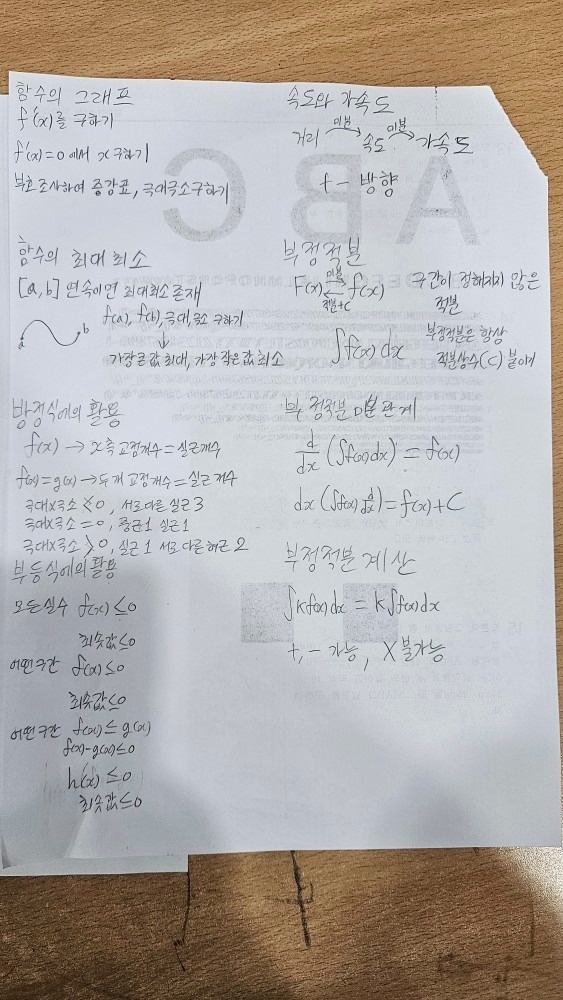 함수의 그래프
f'(x)를 구하기
f'(x)=0 에서 x 구하기
부호조사하여 증감표, 극대극소구하기
함수의 최대 최소
[a,b] 연속이면 최대최소존재
f(a), f(b), 극대, 극소 구하기
a b
↓
가장큰값 최대, 가장 작은값 최소
방정식에의 활용
f(x) → x축 교점개수 = 실근개수
f(x)=g(x) → 두개 교점개수 = 실근개수
극대x극소 <0, 서로다른 실근 3
극대x극소 =0, 중근1 실근1
극대x극소 >0, 실근1 서로다른허근 2
부등식에의 활용
모든실수 f(x) ≤0
최솟값≤0
어떤구간 f(x) ≤0
최솟값≤0
어떤구간 f(x) ≤ g(x)
f(x)-g(x)≤0
h(x) ≤0
최솟값≤0
속도와 가속도
미분 미분
거리 → 속도 → 가속도
+ - 방향
부정적분
미분
F(x) ⇄ f(x) 구간이 정해지지 않은
적분+C 적분
∫f(x)dx 부정적분은 항상
적분상수(C) 붙이기
부정적분 미분관계
d/dx (∫f(x)dx) = f(x)
dx (∫f(x) d/dx) = f(x)+C
부정적분 계산
∫kf(x)dx = k∫f(x)dx
+,- 가능, X 불가능